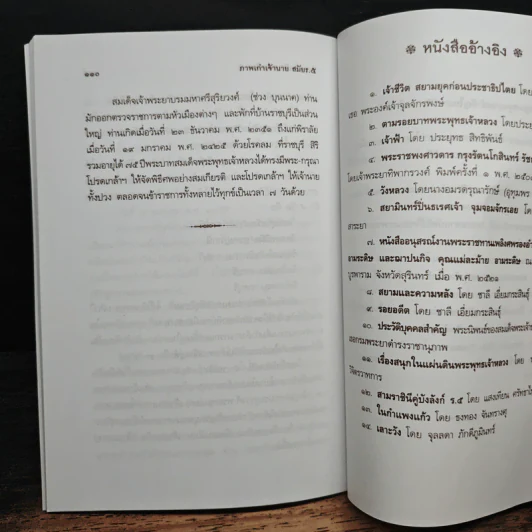 ๑๑๐
ภาพเก่าเจ้านาย สมัยร.๕
สมเด็จเจ้าพระยาบรมมหาศรีสุริยวงศ์ (ช่วง บุนนาค) ท่าน
มักออกตรวจราชการตามหัวเมืองต่างๆ และพักที่บ้านราชบุรีเป็นส่วน
ใหญ่ ท่านเกิดเมื่อวันที่ ๒๓ ธันวาคม พ.ศ. ๒๓๕๑ ถึงแก่พิราลัย
เมื่อวันที่ ๑๙ มกราคม พ.ศ. ๒๔๒๕ ด้วยโรคลม ที่ราชบุรี สิริ
รวมอายุได้ ๗๕ ปีพระบาทสมเด็จพระพุทธเจ้าหลวงได้ทรงมีพระ-กรุณา
โปรดเกล้าฯ ให้จัดพิธีศพอย่างสมเกียรติ และโปรดเกล้าฯ ให้เจ้านาย
ทั้งปวง ตลอดจนข้าราชการทั้งหลายไว้ทุกข์เป็นเวลา ๗ วันด้วย
หนังสืออ้างอิง
๑. เจ้าชีวิต สยามยุคก่อนประชาธิปไตย โดย
เธอ พระองค์เจ้าจุลจักรพงษ์
๒. ตามรอยบาทพระพุทธเจ้าหลวง โดยประย
๓. เจ้าฟ้า โดย ประยุทธ สิทธิพันธ์
๔. พระราชพงศาวดาร กรุงรัตนโกสินทร์ รัช
โดยเจ้าพระยาทิพากรวงศ์ พิมพ์ครั้งที่ ๑ พ.ศ.
๕. วังหลวง โดยนางอมรดรุณารักษ์ (อุทุมพร
๖. สยามินทร์ปิ่นธเรศเจ้า จุมจอมจักรเอย โดย
๗. หนังสืออนุสรณ์งานพระราชทานเพลิงศพรองอำ
และฌาปนกิจ คุณแม่ละม้าย
จังหวัดสุรินทร์ เมื่อ พ.ศ. ๒๕๒๑
๘. สยามและความหลัง โดย ชาลี เอี่ยมกระสินธุ์
๙. รอยอดีต โดย ชาลี เอี่ยมกระสินธุ์
๑๐. ประวัติบุคคลสำคัญ พระนิพนธ์ของสมเด็จพระเจ้า
กรมพระยาดำรงราชานุภาพ
๑๑. เรื่องสนุกในแผ่นดินพระพุทธเจ้าหลวง โดย
วิจิตรวาทการ
๑๒. สามราชินีคู่บัลลังก์ ร.๕ โดย แสงเทียน
๑๓. ในกำแพงแก้ว โดย ธงทอง จันทรางศุ
๑๔. เลาะวัง โดย จุลลดา ภักดีภูมินทร์